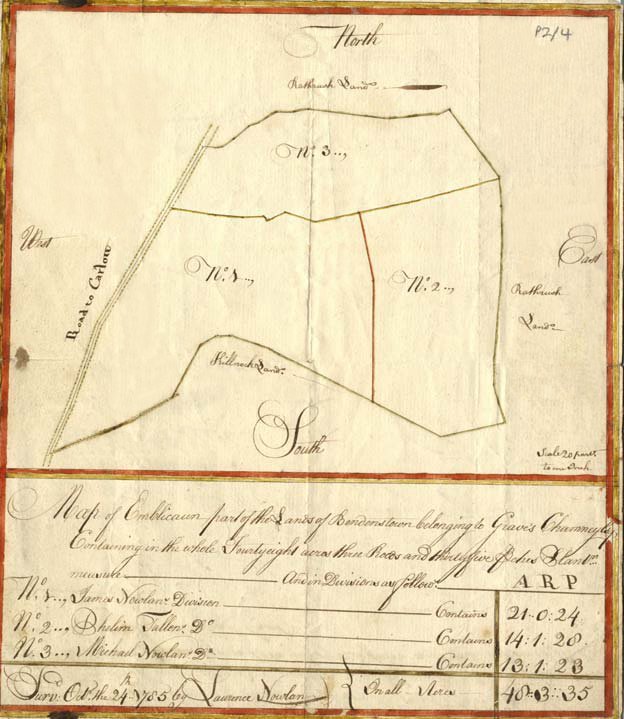 P2/4
North
Rathrush Lands
No. 3..,
West
Road to Carlow
No. 1..,
No. 2..,
East
Rathrush
Lands
Killnock Lands
South
Scale 20 parts
to one Inch
Map of Emblicaun part of the Lands of Bendenstown belonging to Graves Chamney Esq
Containing in the whole Fourtyeight acres three Roods and thirtyfive Perches Plantn
measure And in Divisions as follows
A R P
No. 1.., James Nowlans Division Contains 21:0:24
No. 2.., Phelim Fallons Do Contains 14:1:28
No. 3.., Michael Nowlans Do Contains 13:1:23
Survd. Octr. the 24th 1785 by Laurence Nowlan In all Acres 48:3:35